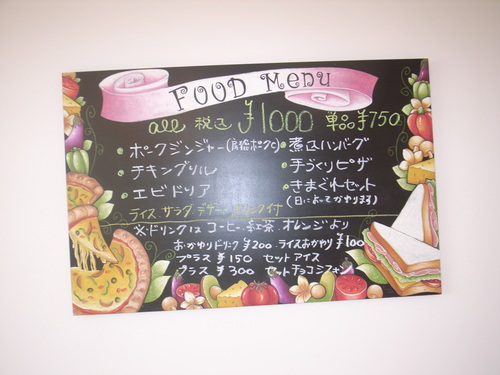 FOOD Menu
all 税込 ¥1000 単品¥750
・ポークジンジャー
・チキングリル
・エビドリア
・煮込ハンバーグ
・手づくりピザ
・きまぐれセット
(日によってかわります)
ライス、サラダ、デザート、ドリンク付
※ドリンクは コーヒー、紅茶、オレンジより
おかわりドリンク ¥200 ライスおかわり ¥100
プラス ¥150 セットアイス
プラス ¥300 セットチョコシフォン